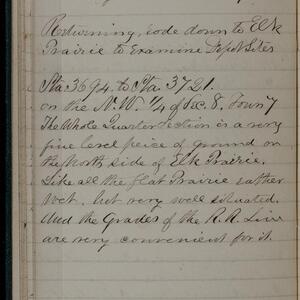 Returning, rode down to Elk
Prairie to Examine Depot Sites
Sta. 3694. to Sta. 3721.
on the N.W. 1/4 of Sec. 8. Town 7
The Whole Quarter Section is a very
fine level peice of ground on
the North side of Elk Prairie.
Like all the flat Prairie rather
wet. but very well situated.
And the Grades of the R.R. Line
are very convenient for it.